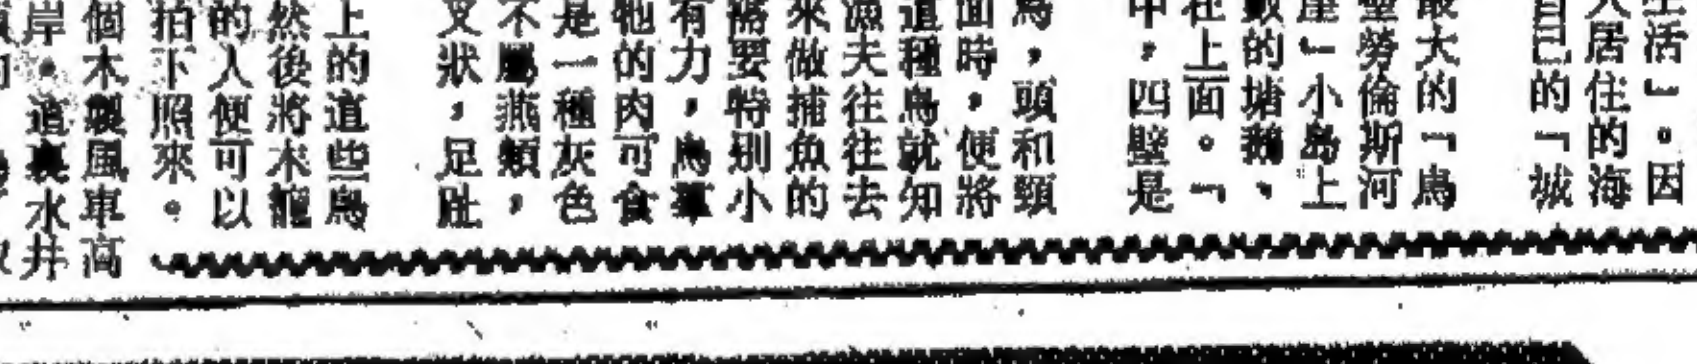 生活」。因
人居住的海
自己的「城
最大的「鳥
聖勞倫斯河
崖」小島上
數的塘鵝、
在上面。「
中,四壁是
鳥,頭和頸
面時,便將
這種鳥就知
漁夫往往去
來做捕魚的
需要特別小
有力,鳥
牠的肉可食
是一種灰色
不屬燕類,
叉狀,足趾
上的這些鳥
然後將木籠
的人便可以
拍下照來。
個木製風車高
岸。這裏水井